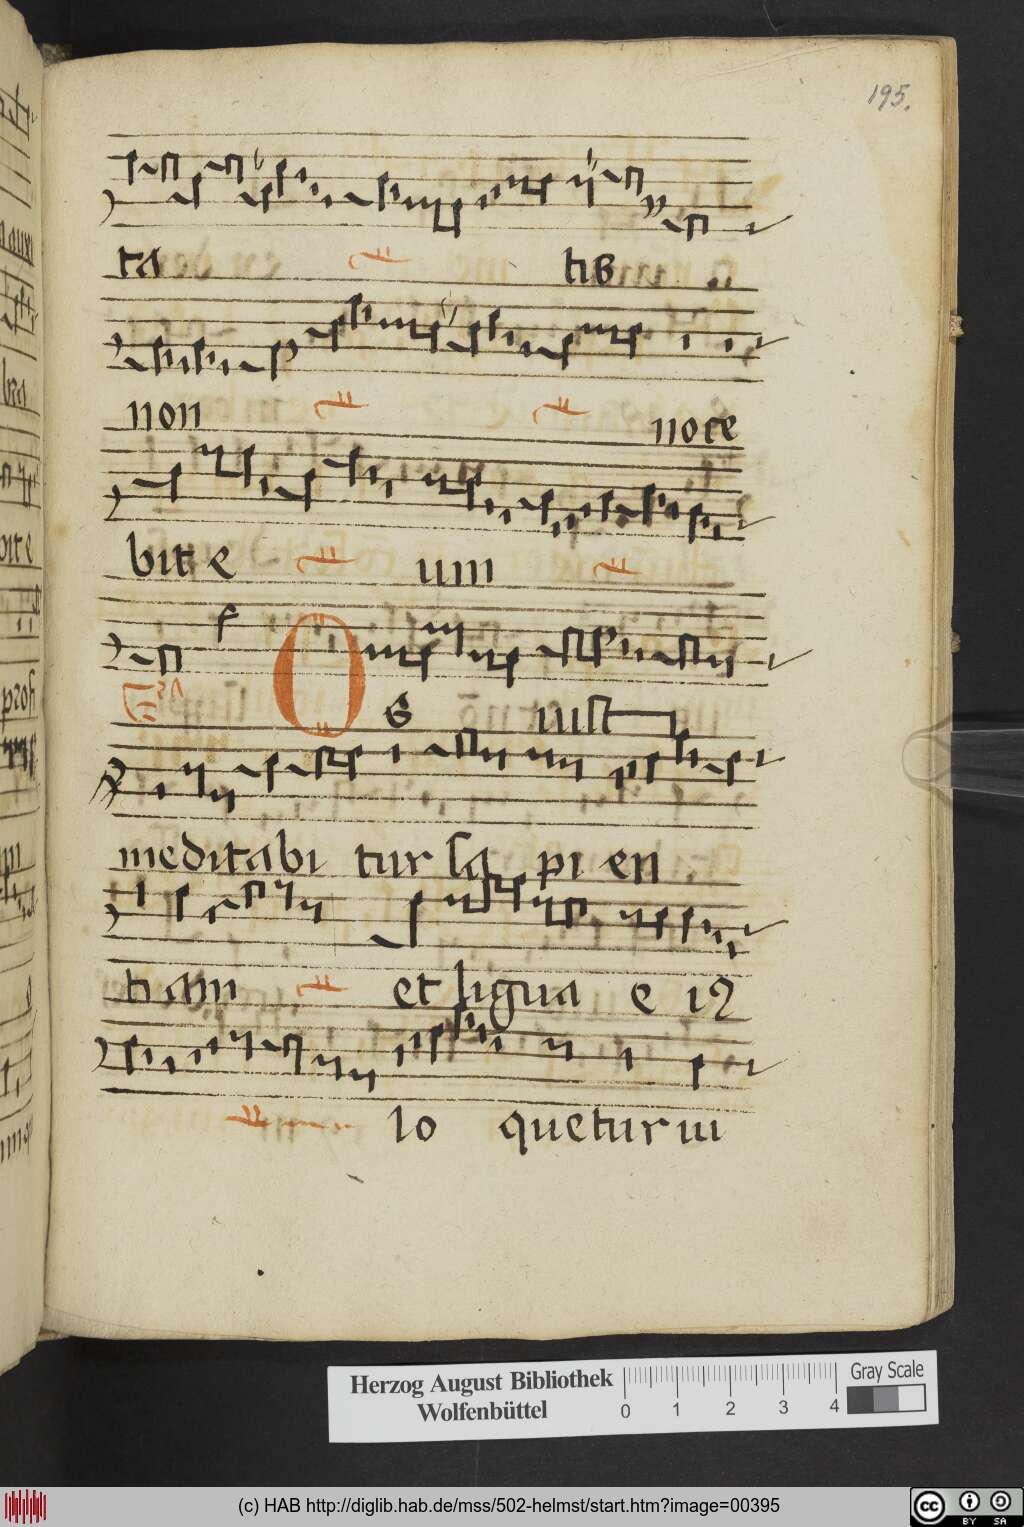 195.
ta tib9
non noce
bit e um
Os iust
meditabi tur sa pi en
ti am et ligua e i9
lo quetur iu
Herzog August Bibliothek
Wolfenbüttel
0 1 2 3 4
Gray Scale
(c) HAB http://diglib.hab.de/mss/502-helmst/start.htm?image=00395
cc BY SA